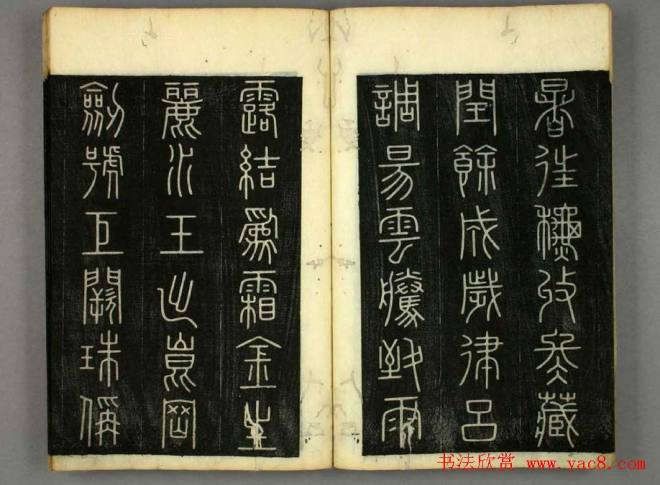 暑往秋收冬藏
閏餘成歲律呂
調昜雲騰致雨
露結爲霜金生
麗水玉出崑岡
劍號巨闕珠偁
书法欣赏 www.yac8.com